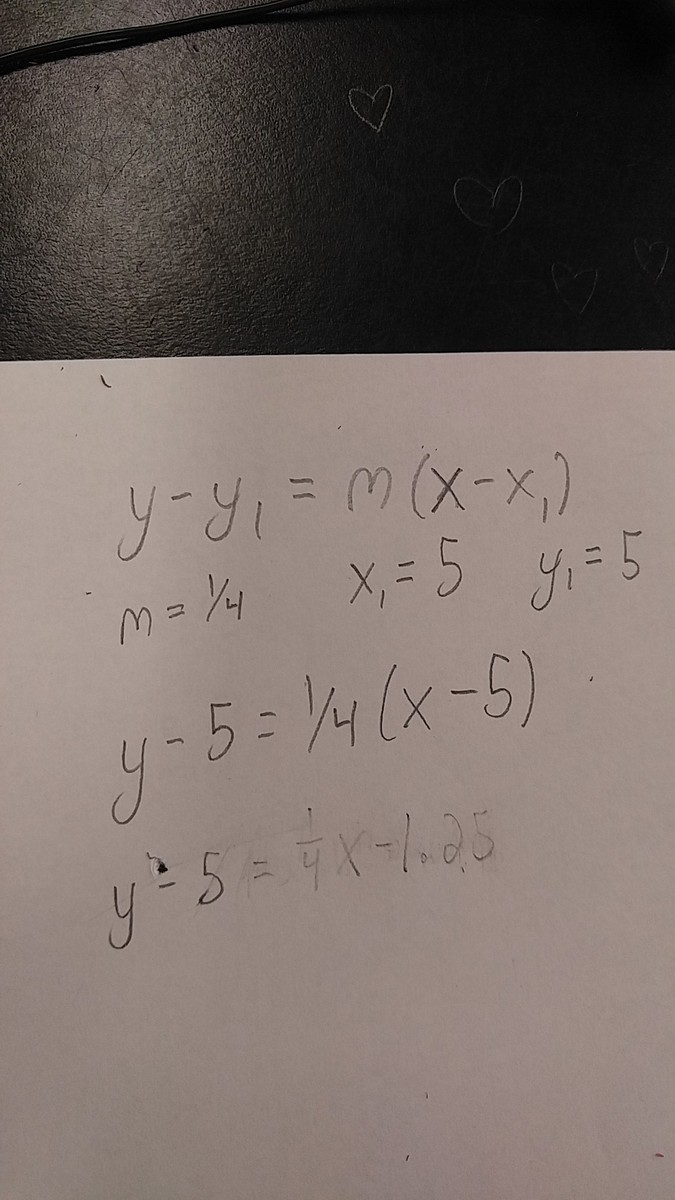 y - y₁ = m(x - x₁)
m = 1/4 x₁ = 5 y₁ = 5
y - 5 = 1/4(x - 5)
y - 5 = 1/4 x - 1.25